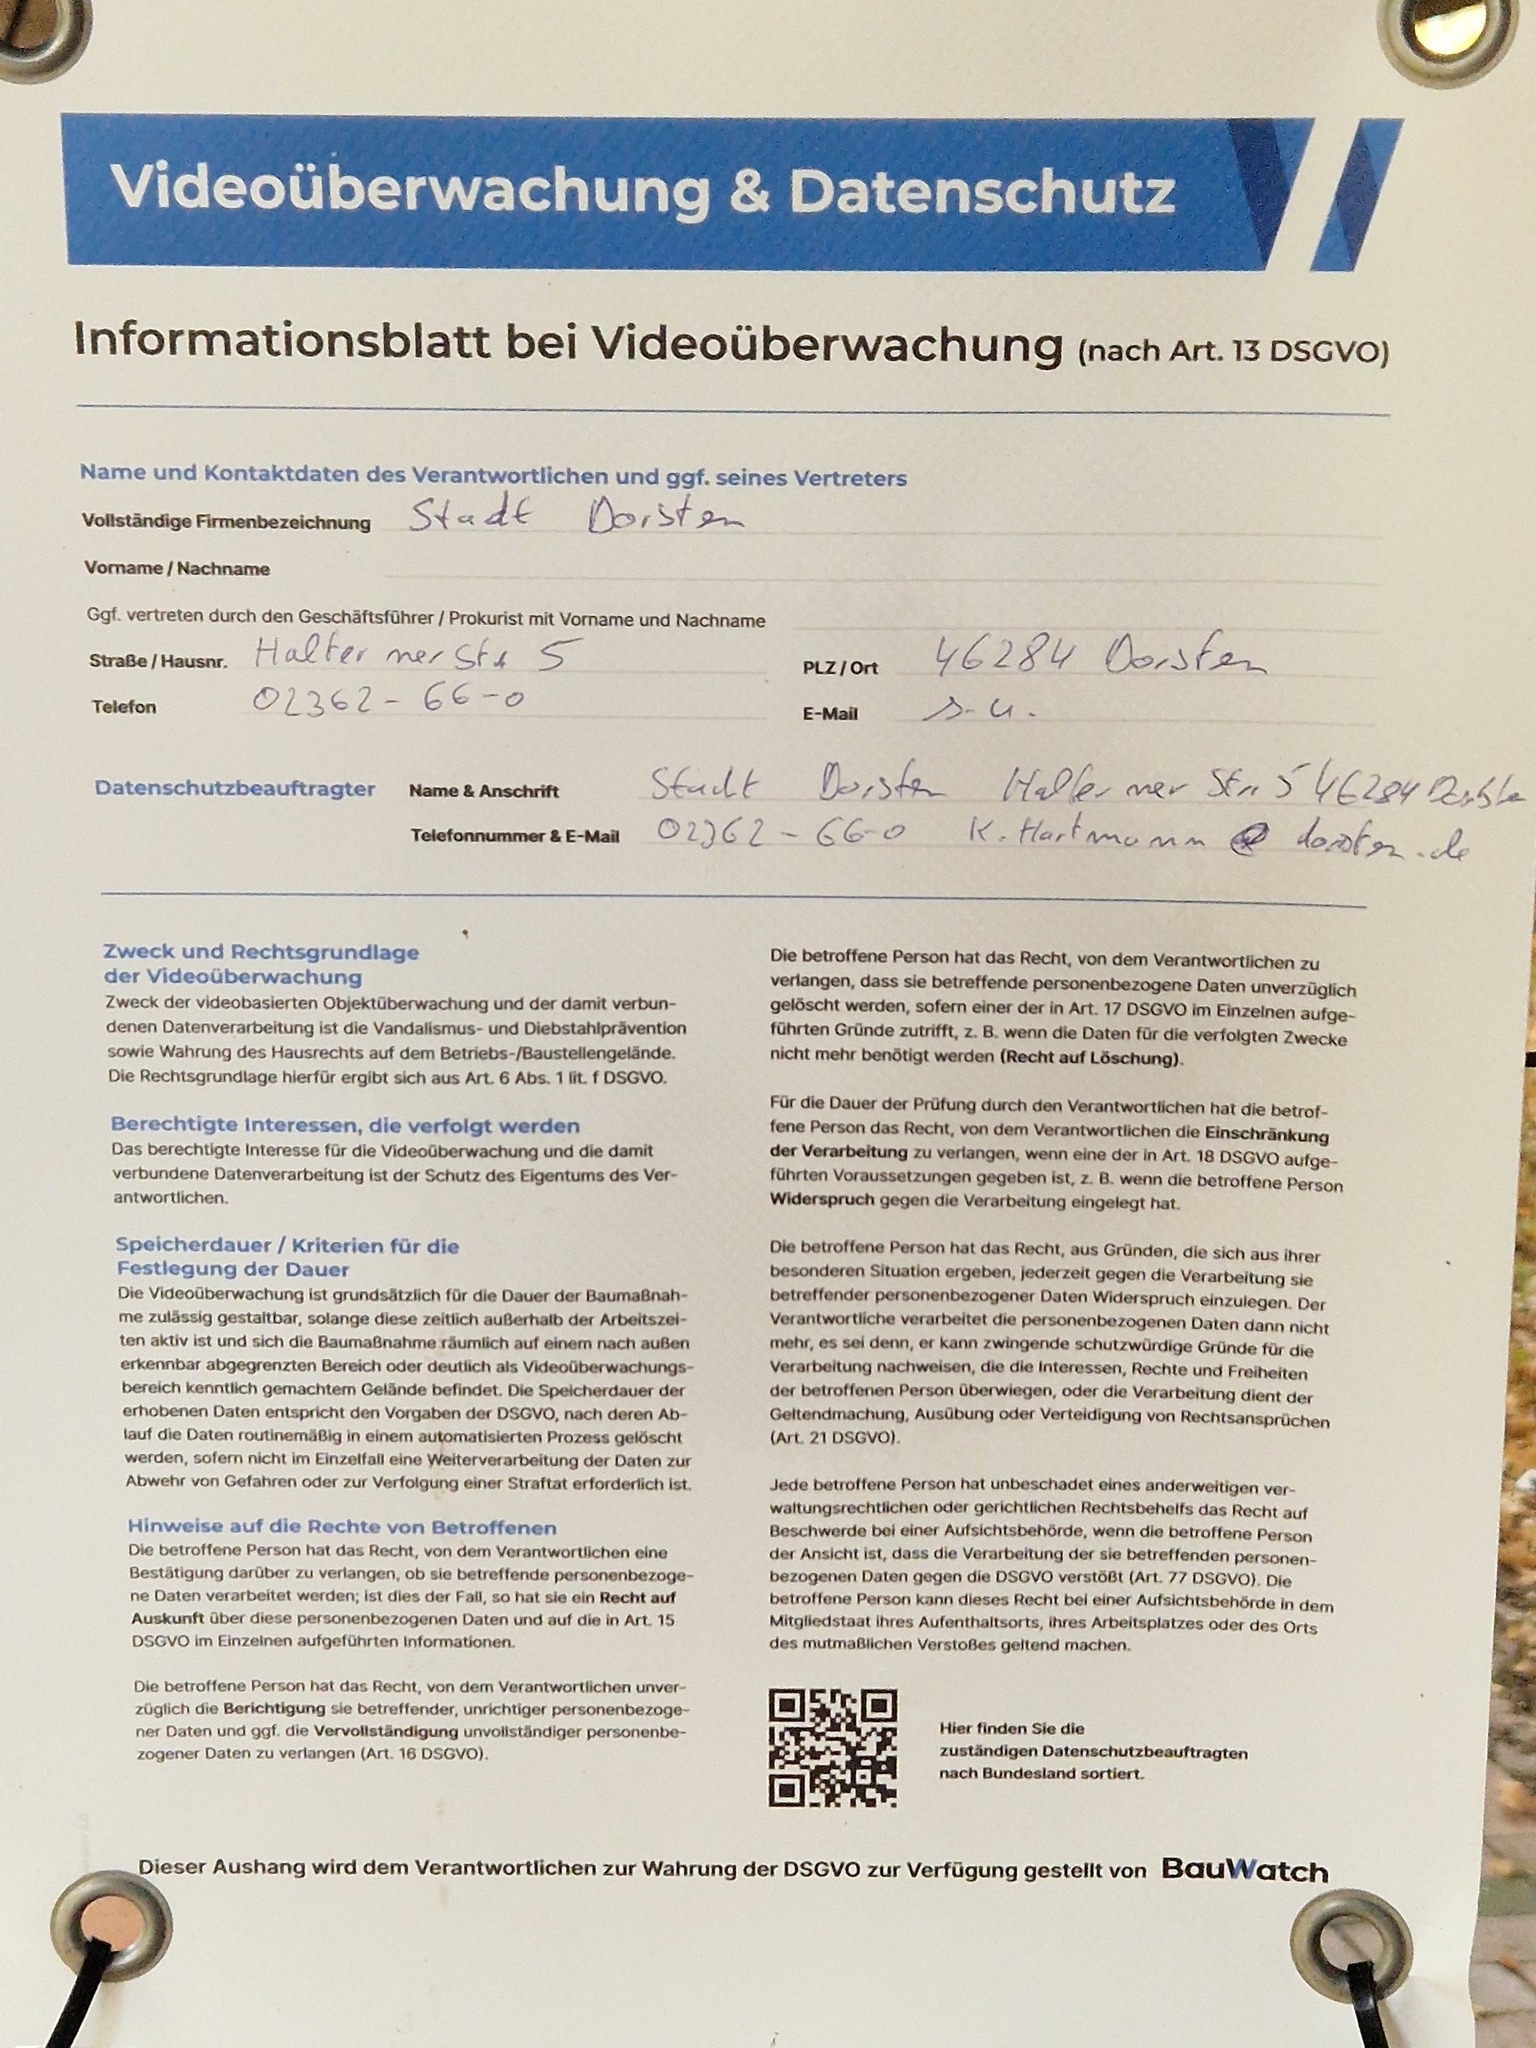 Videoüberwachung & Datenschutz
Informationsblatt bei Videoüberwachung (nach Art. 13 DSGVO)
Name und Kontaktdaten des Verantwortlichen und ggf. seines Vertreters
Vollständige Firmenbezeichnung Stadt Dorsten
Vorname / Nachname
Ggf. vertreten durch den Geschäftsführer / Prokurist mit Vorname und Nachname
Straße / Hausnr. Halterner Str. 5 PLZ / Ort 46284 Dorsten
Telefon 02362 - 66-0 E-Mail s.u.
Datenschutzbeauftragter Name & Anschrift Stadt Dorsten Halterner Str. 5 46284 Dorsten
Telefonnummer & E-Mail 02362 - 66-0 K.Hartmann @ dorsten.de
Zweck und Rechtsgrundlage
der Videoüberwachung
Zweck der videobasierten Objektüberwachung und der damit verbun-
denen Datenverarbeitung ist die Vandalismus- und Diebstahlprävention
sowie Wahrung des Hausrechts auf dem Betriebs-/Baustellengelände.
Die Rechtsgrundlage hierfür ergibt sich aus Art. 6 Abs. 1 lit. f DSGVO.
Berechtigte Interessen, die verfolgt werden
Das berechtigte Interesse für die Videoüberwachung und die damit
verbundene Datenverarbeitung ist der Schutz des Eigentums des Ver-
antwortlichen.
Speicherdauer / Kriterien für die
Festlegung der Dauer
Die Videoüberwachung ist grundsätzlich für die Dauer der Baumaßnah-
me zulässig gestaltbar, solange diese zeitlich außerhalb der Arbeitszei-
ten aktiv ist und sich die Baumaßnahme räumlich auf einem nach außen
erkennbar abgegrenzten Bereich oder deutlich als Videoüberwachungs-
bereich kenntlich gemachtem Gelände befindet. Die Speicherdauer der
erhobenen Daten entspricht den Vorgaben der DSGVO, nach deren Ab-
lauf die Daten routinemäßig in einem automatisierten Prozess gelöscht
werden, sofern nicht im Einzelfall eine Weiterverarbeitung der Daten zur
Abwehr von Gefahren oder zur Verfolgung einer Straftat erforderlich ist.
Hinweise auf die Rechte von Betroffenen
Die betroffene Person hat das Recht, von dem Verantwortlichen eine
Bestätigung darüber zu verlangen, ob sie betreffende personenbezoge-
ne Daten verarbeitet werden; ist dies der Fall, so hat sie ein Recht auf
Auskunft über diese personenbezogenen Daten und auf die in Art. 15
DSGVO im Einzelnen aufgeführten Informationen.
Die betroffene Person hat das Recht, von dem Verantwortlichen unver-
züglich die Berichtigung sie betreffender, unrichtiger personenbezoge-
ner Daten und ggf. die Vervollständigung unvollständiger personenbe-
zogener Daten zu verlangen (Art. 16 DSGVO).
Die betroffene Person hat das Recht, von dem Verantwortlichen zu
verlangen, dass sie betreffende personenbezogene Daten unverzüglich
gelöscht werden, sofern einer der in Art. 17 DSGVO im Einzelnen aufge-
führten Gründe zutrifft, z. B. wenn die Daten für die verfolgten Zwecke
nicht mehr benötigt werden (Recht auf Löschung).
Für die Dauer der Prüfung durch den Verantwortlichen hat die betrof-
fene Person das Recht, von dem Verantwortlichen die Einschränkung
der Verarbeitung zu verlangen, wenn eine der in Art. 18 DSGVO aufge-
führten Voraussetzungen gegeben ist, z. B. wenn die betroffene Person
Widerspruch gegen die Verarbeitung eingelegt hat.
Die betroffene Person hat das Recht, aus Gründen, die sich aus ihrer
besonderen Situation ergeben, jederzeit gegen die Verarbeitung sie
betreffender personenbezogener Daten Widerspruch einzulegen. Der
Verantwortliche verarbeitet die personenbezogenen Daten dann nicht
mehr, es sei denn, er kann zwingende schutzwürdige Gründe für die
Verarbeitung nachweisen, die die Interessen, Rechte und Freiheiten
der betroffenen Person überwiegen, oder die Verarbeitung dient der
Geltendmachung, Ausübung oder Verteidigung von Rechtsansprüchen
(Art. 21 DSGVO).
Jede betroffene Person hat unbeschadet eines anderweitigen ver-
waltungsrechtlichen oder gerichtlichen Rechtsbehelfs das Recht auf
Beschwerde bei einer Aufsichtsbehörde, wenn die betroffene Person
der Ansicht ist, dass die Verarbeitung der sie betreffenden personen-
bezogenen Daten gegen die DSGVO verstößt (Art. 77 DSGVO). Die
betroffene Person kann dieses Recht bei einer Aufsichtsbehörde in dem
Mitgliedstaat ihres Aufenthaltsorts, ihres Arbeitsplatzes oder des Orts
des mutmaßlichen Verstoßes geltend machen.
Hier finden Sie die
zuständigen Datenschutzbeauftragten
nach Bundesland sortiert.
Dieser Aushang wird dem Verantwortlichen zur Wahrung der DSGVO zur Verfügung gestellt von BauWatch